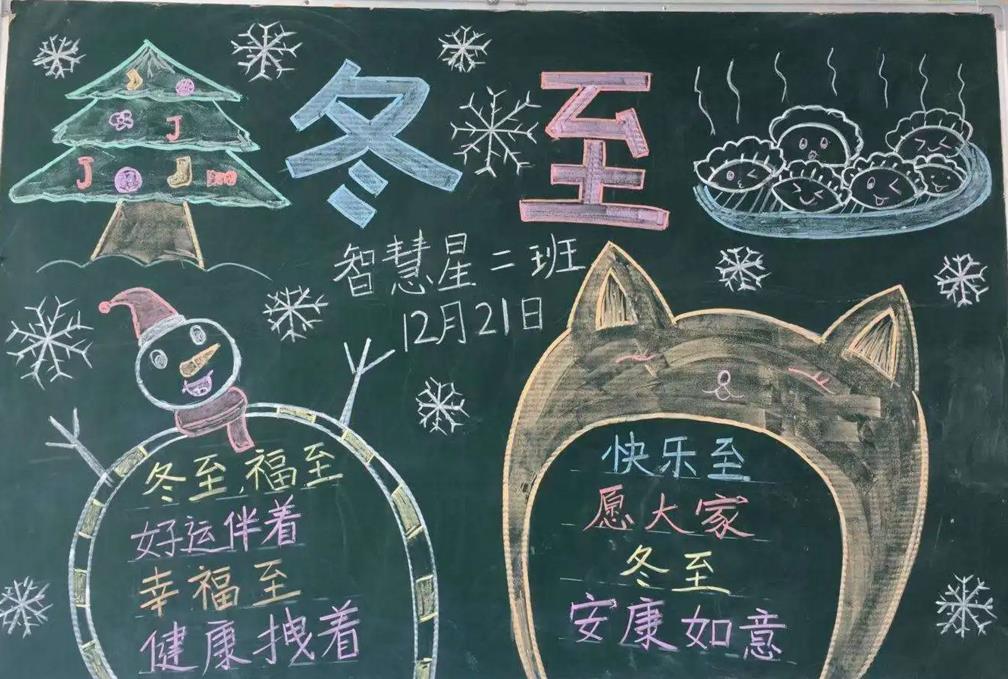 冬至
智慧星二班
12月21日
冬至,福至
好运伴着
幸福至
健康拽着
快乐至
愿大家
冬至
安康如意